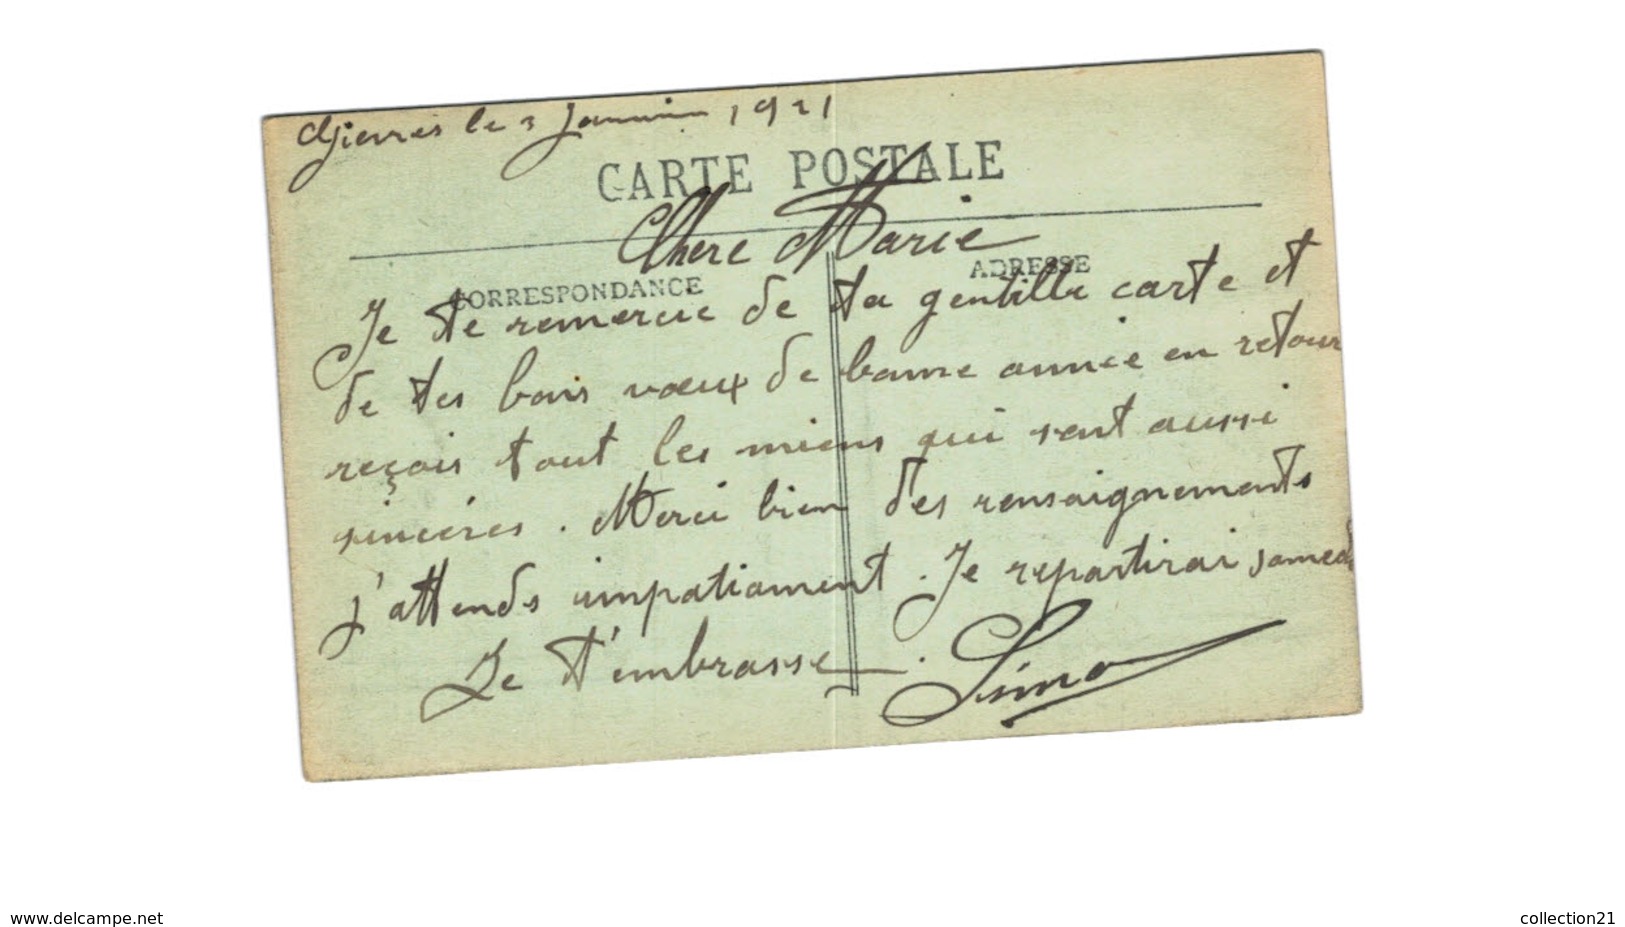 Gièvres le 3 Janvier 1921
CARTE POSTALE
Chere Marie
CORRESPONDANCE
ADRESSE
Je te remercie de ta gentille carte et
de tes bons vœux de bonne année en retour
reçois tout les miens qui sont aussi
sincères. Merci bien des rensaignements
j'attends impatiament. Je repartirai samedi
Je t'embrasse. Simo
www.delcampe.net
collection21